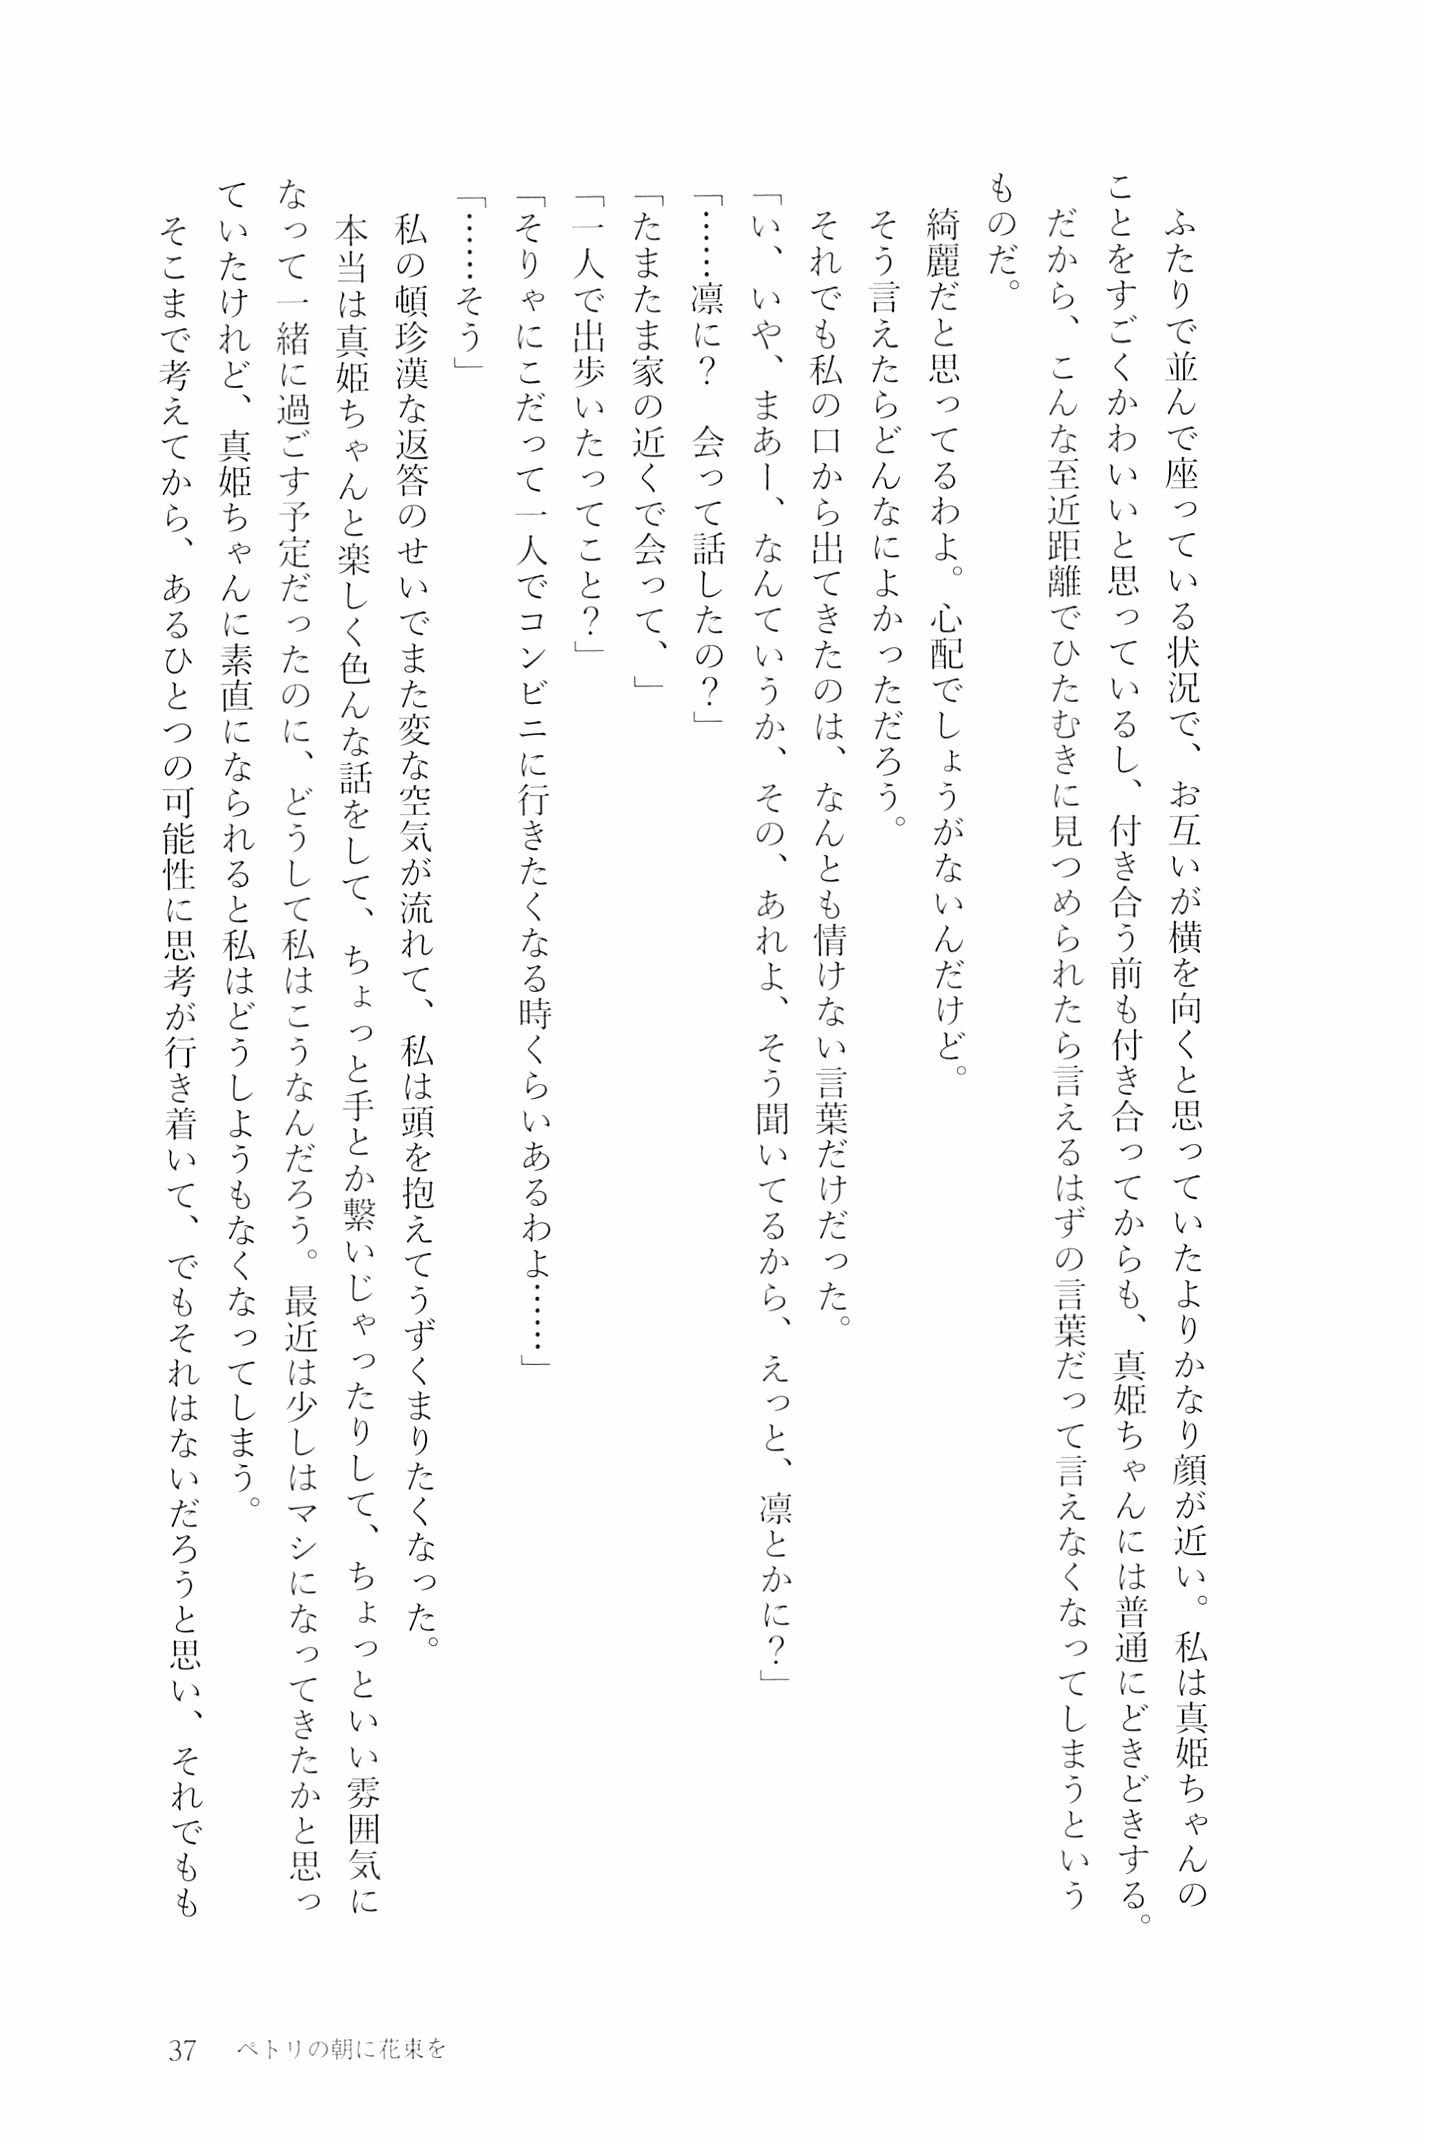 ふたりで並んで座っている状況で、お互いが横を向くと思っていたよりかなり顔が近い。私は真姫ちゃんの
ことをすごくかわいいと思っているし、付き合う前も付き合ってからも、真姫ちゃんには普通にどきどきする。
　だから、こんな至近距離でひたむきに見つめられたら言えるはずの言葉だって言えなくなってしまうという
ものだ。
　綺麗だと思ってるわよ。心配でしょうがないんだけど。
　そう言えたらどんなによかっただろう。
　それでも私の口から出てきたのは、なんとも情けない言葉だけだった。
「い、いや、まあー、なんていうか、その、あれよ、そう聞いてるから、えっと、凛とかに？」
「……凛に？　会って話したの？」
「たまたま家の近くで会って、」
「一人で出歩いたってこと？」
「そりゃにこだって一人でコンビニに行きたくなる時くらいあるわよ……」
「……そう」
　私の頓珍漢な返答のせいでまた変な空気が流れて、私は頭を抱えてうずくまりたくなった。
　本当は真姫ちゃんと楽しく色んな話をして、ちょっと手とか繋いじゃったりして、ちょっといい雰囲気に
なって一緒に過ごす予定だったのに、どうして私はこうなんだろう。最近は少しはマシになってきたかと思っ
ていたけれど、真姫ちゃんに素直になられると私はどうしようもなくなってしまう。
　そこまで考えてから、あるひとつの可能性に思考が行き着いて、でもそれはないだろうと思い、それでもも
37　ペトリの朝に花束を